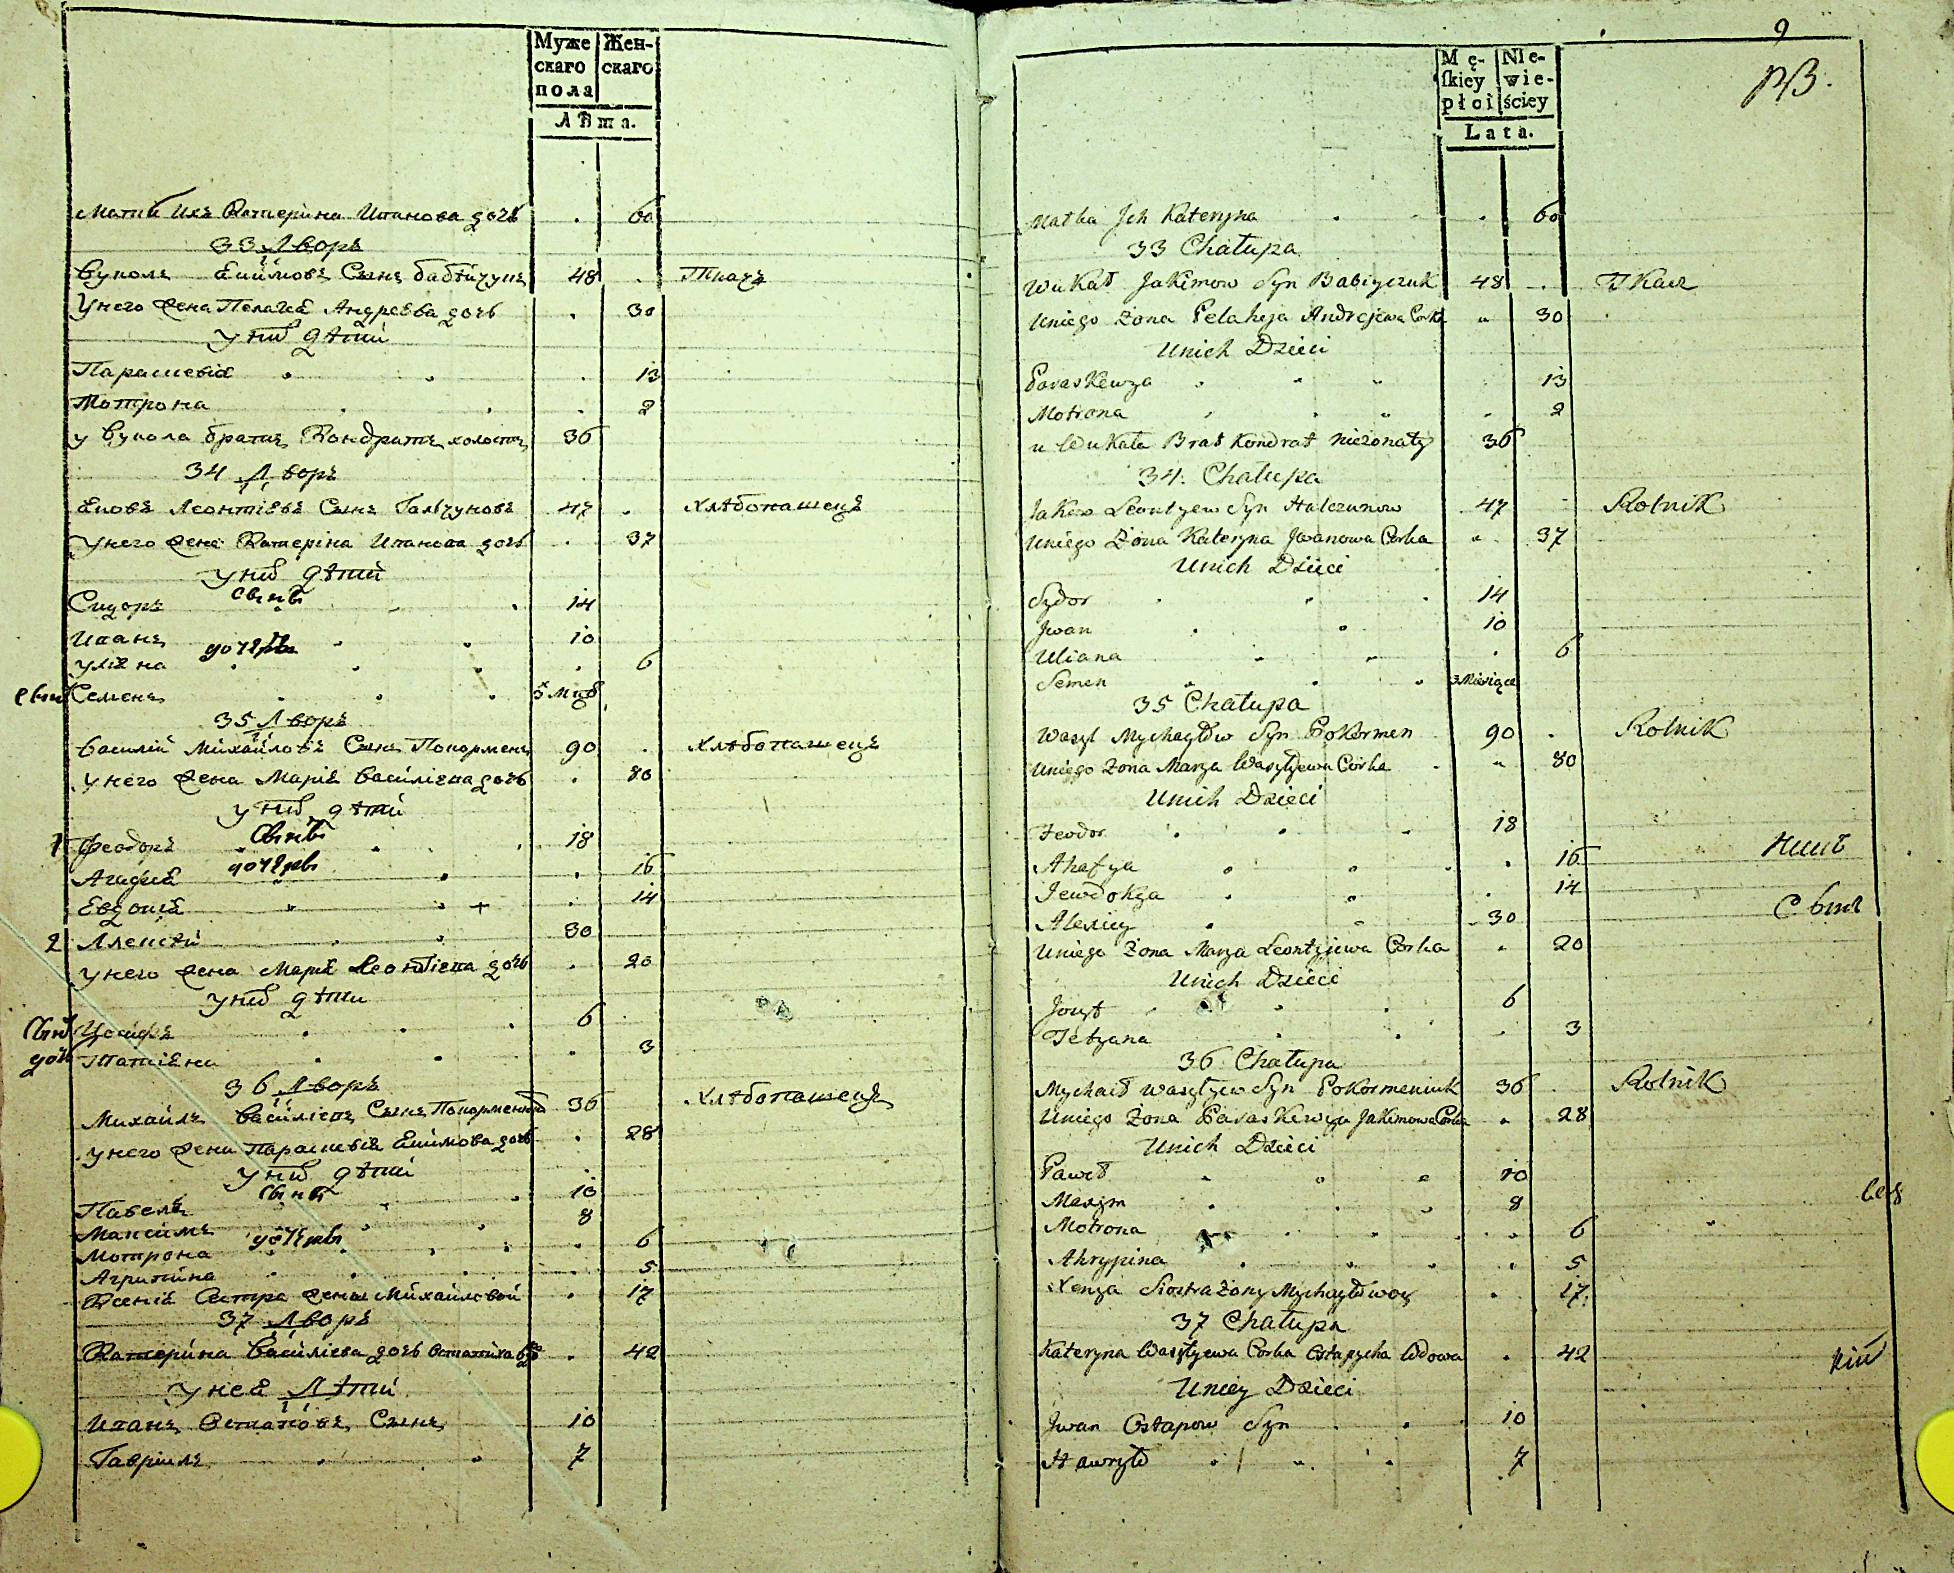 Муже
скаго
пола
Жен-
скаго
Лѣта.
Мати Ихъ Катерина Иванова дочь . 60
33 Дворъ
Вукола Екимовъ Сынъ бабѣйчукъ 48 . Ткачъ
У него Жена Пелагея Андреева дочь . 30
у них дѣти
Параскевія 13
Мотрона 2
у Вукола братъ Кондратъ холостъ 36
34 Дворъ
Яковъ Леонтіевъ Сынъ Галчуновъ 47 . Хлѣбопашецъ
У него Жена Катеріна Иванова дочь . 37
у них дѣти
Сынъ
Сидоръ 14
Иванъ 10
дочерь
Уліяна 6
Сынъ Семенъ 3 мцъ
35 Дворъ
Василій Михайловъ Сынъ Покорменъ 90 . Хлѣбопашецъ
у него Жена Марія Василіева дочь . 80
у них дѣти
Сынъ
1 Феодоръ 18
дочерь
Агафія 16
Евдокія + 14
2 Алексѣй 30
у него Жена Марія Леонтіева дочь . 20
у них дѣти
Сынъ Іосифъ 6
дочь Татіяна 3
36 Дворъ
Михаилъ Василіевъ Сынъ Покорменюкъ 36 Хлѣбопашецъ
у него Жена Параскевія Екимова дочь . 28
у них дѣти
Сынъ
Павелъ 10
Максимъ 8
дочерь
Мотрона 6
Агрипина 5
Ксенія Сестра Жены Михайловой . 17
37 Дворъ
Катерина Василіева дочь Остапиха . 42
у нея Дѣти
Иванъ Остаповъ Сынъ 10
Гавріилъ 7
9
Mę-
skiey
płci
Nie-
wie-
ściey
Lata.
Matka Jch Kateryna 60
33 Chałupa
Wukał Jakimow Syn Babiyczuk 48 . Tkacz
Uniego Żona Pelaheja Andrejewa Corka 30
Unich Dzieci
Paraskewya 13
Motrona 2
u Wukała Brat Kondrat nieżonaty 36
34. Chałupa
Jakow Leontyew Syn Halczunow 47 Rolnik
Uniego Żona Kateryna Jwanowa Corka 37
Unich Dzieci
Sydor 14
Jwan 10
Uliana 6
Semen 3 Miesiące
35 Chałupa
Wasyl Mychayłow Syn Pokormen 90 . Rolnik
Uniego Żona Marya Wasylyewa Corka 80
Unich Dzieci
Feodor 18
Ahafya 16
Jewdokya 14
Alexiey 30
Uniego Żona Marya Leontyiewa Corka 20
Unich Dzieci
Jozyf 6
Tetyana 3
36. Chałupa
Mychaił Wasylyew Syn Pokormeniuk 36 . Rolnik
Uniego Żona Paraskewya Jakimowa Corka 28
Unich Dzieci
Paweł 10
Maxym 8
Motrona 6
Ahrypina 5
Xenya Siostra Żony Mychayłowoy 17
37 Chałupa
Kateryna Wasylyewa Corka Ostapycha Wdowa 42
Unicy Dzieci
Jwan Ostapow Syn 10
Hawrył 7